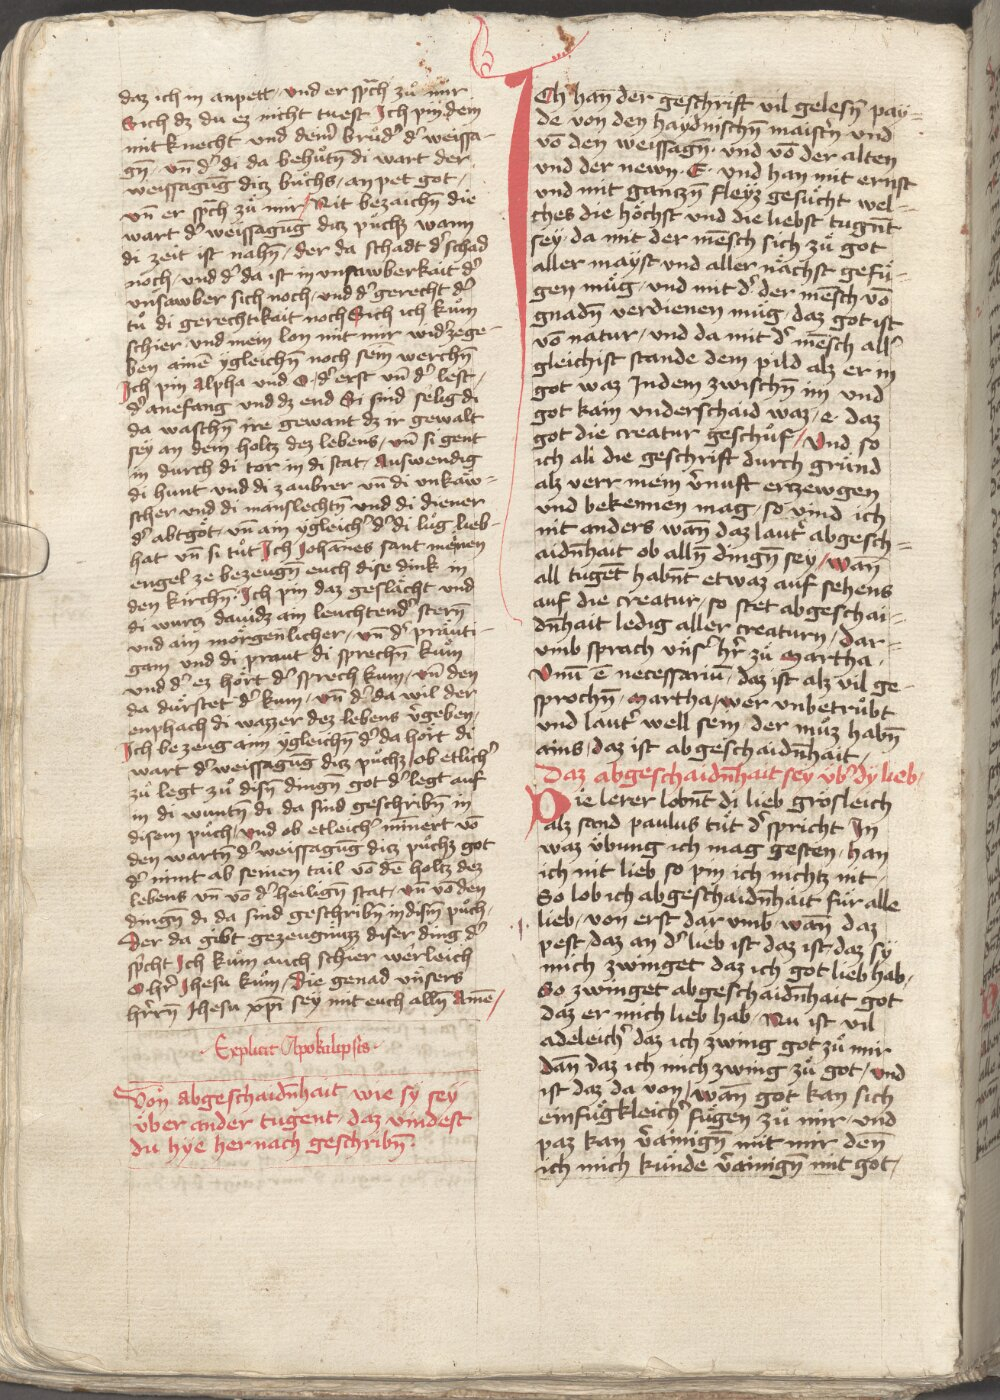 daz ich in anpett / und er sp̃ch zů mir
Sich dz du ez nicht tuest Ich pin dem
mitknecht und dem̃ brůd᷑ d᷑ weissa-
gñ / vñ d᷑ di da behůtñ di wart der
weissagũg ditz bůchs / an pet got /
vñ er sp̃ch zů mir / Nit bezaichñ die
wart d᷑ weissagũg ditz půchs wann
di zeit ist nahñ / der da schadt d᷑ schad
noch / und d᷑ da ist in vnsawberkait d᷑
vnsawber sich noch / und d᷑ gerecht d᷑
tů di gerechtikait noch Sich ich kum̃
schier und mein lon mit mir wid᷑zege-
ben aim̃e ygleichñ noch sein werchñ
Ich pin Alpha und O / d᷑ erst vñ d᷑ lest /
d᷑ anefang und dz end Si sind selig di
da waschñ ire gewant dz ir gewalt
sey an dem holtz dez lebens / vñ si gent
in durch di tor in di stat / Auswendig
di hunt und di zaubrer vñ di unkaẅ-
scher und di manslechtñ und di diener
d᷑ abtgöt / vñ ain ygleich᷑ d᷑ di lug lieb-
hat vñ si tůt Ich Johãnes sant meinen
engel ze bezeugñ euch dise dink in
den kirchñ Ich pin daz geslächt und
di wurcz dauidz ain leuchtend᷑ stern
und ain morgenlicher / vñ d᷑ präuti-
gam und di praut di sprechñ kum̃
und d᷑ ez hört d᷑ sprech kum / vñ den
da dürstet d᷑ kum / vñ d᷑ da wil der
emphach di wazzer dez lebens v᷑geben /
Ich bezeug aim ygleichñ d᷑ da hört di
wart d᷑ weissagũg ditz půchz / ob etlich᷑
zů legt zů disñ dingñ got d᷑ legt auf
in di wuntñ di da sind geschribñ in
disem půch / und ob etleich᷑ mĩnert võ
den wartñ d᷑ weissagũg ditz půchz got
d᷑ nimt ab seinen tail võ dẽ holtz dez
lebens vñ võ d᷑ heiligñ stat / vñ võ den
dingñ di da sind geschribñ in dism̃ půch /
Der da gibt gezeugnüzz diser ding d᷑
sp̃cht Ich kum̃ auch schier werleich
O hr᷑ Jhesu kum̃ / Die genad vnsers
hr᷑rñ Jhesu xp̃i sey mit euch alln̄ Amẽ /
· Explicit Apokalipsis ·
Von abgeschaidñhait wie sy sey
über ander tugent / daz vindest
du hye hernach geschribñ ·
ICh han der geschrift vil gelesñ pay-
de von den haydnischñ maistrñ und
võ den weissagñ · und võ der alten
und der newñ · E · und han mit ernst
und mit gantzñ fleyz gesůcht wel-
ches die höchst und die liebst tugñt
sey / da mit der mẽsch sich zů got
aller mayst und aller nächst gefů-
gen müg / und mit d᷑ der mẽsch võ
gnadñ verdienen müg / daz got ist
võ natur / und da mit d᷑ mẽsch all᷑
gleichist stande dem pild alz er in
got waz Indem zwischñ im und
got kain underschaid waz / e · daz
got die creatur geschůf / Und so
ich all die geschrift durch gründ
alz verr mein v᷑nuft erczewgen
und bekennen mag / so vind ich
nit anders wañ daz laut᷑ abgesch-
aidñhait ob allñ dingñ sey / wañ
all tugẽt habñt etwaz auf sehens
auf die creatur / so stet abgeschai-
dñhait ledig aller creaturn / Dar-
umb sprach uns᷑ hr᷑ zů Martha /
Unũ ẽ necessariũ / daz ist alz vil ge-
sprochñ / Martha / wer unbetrůbt
und laut᷑ well sein / der můz habñ
ains / daz ist abgeschaidñhait /
Daz abgeschaidñhait sey üb᷑ dy lieb /
Die lerer lobñt di lieb grösleich
alz sand paulus tůt d᷑ spricht In
waz übung ich mag gesten / han
ich nit lieb so pin ich nichtz nit /
So lob ich abgeschaidñhait für alle
lieb / von erst dar umb wañ daz
pest daz an d᷑ lieb ist daz ist daz sy
mich zwinget daz ich got lieb hab /
So zwinget abgeschaidñhait got
daz er mich lieb hab / Nu ist vil
adeleich᷑ daz ich zwing got zů mir
dañ daz ich mich zwing zů got / und
ist daz da von / wañ got kan sich
einfügkleich᷑ fügen zů mir / und
paz kan v᷑ainigñ mit mir deñ
ich mich künde v᷑ainigñ mit got /